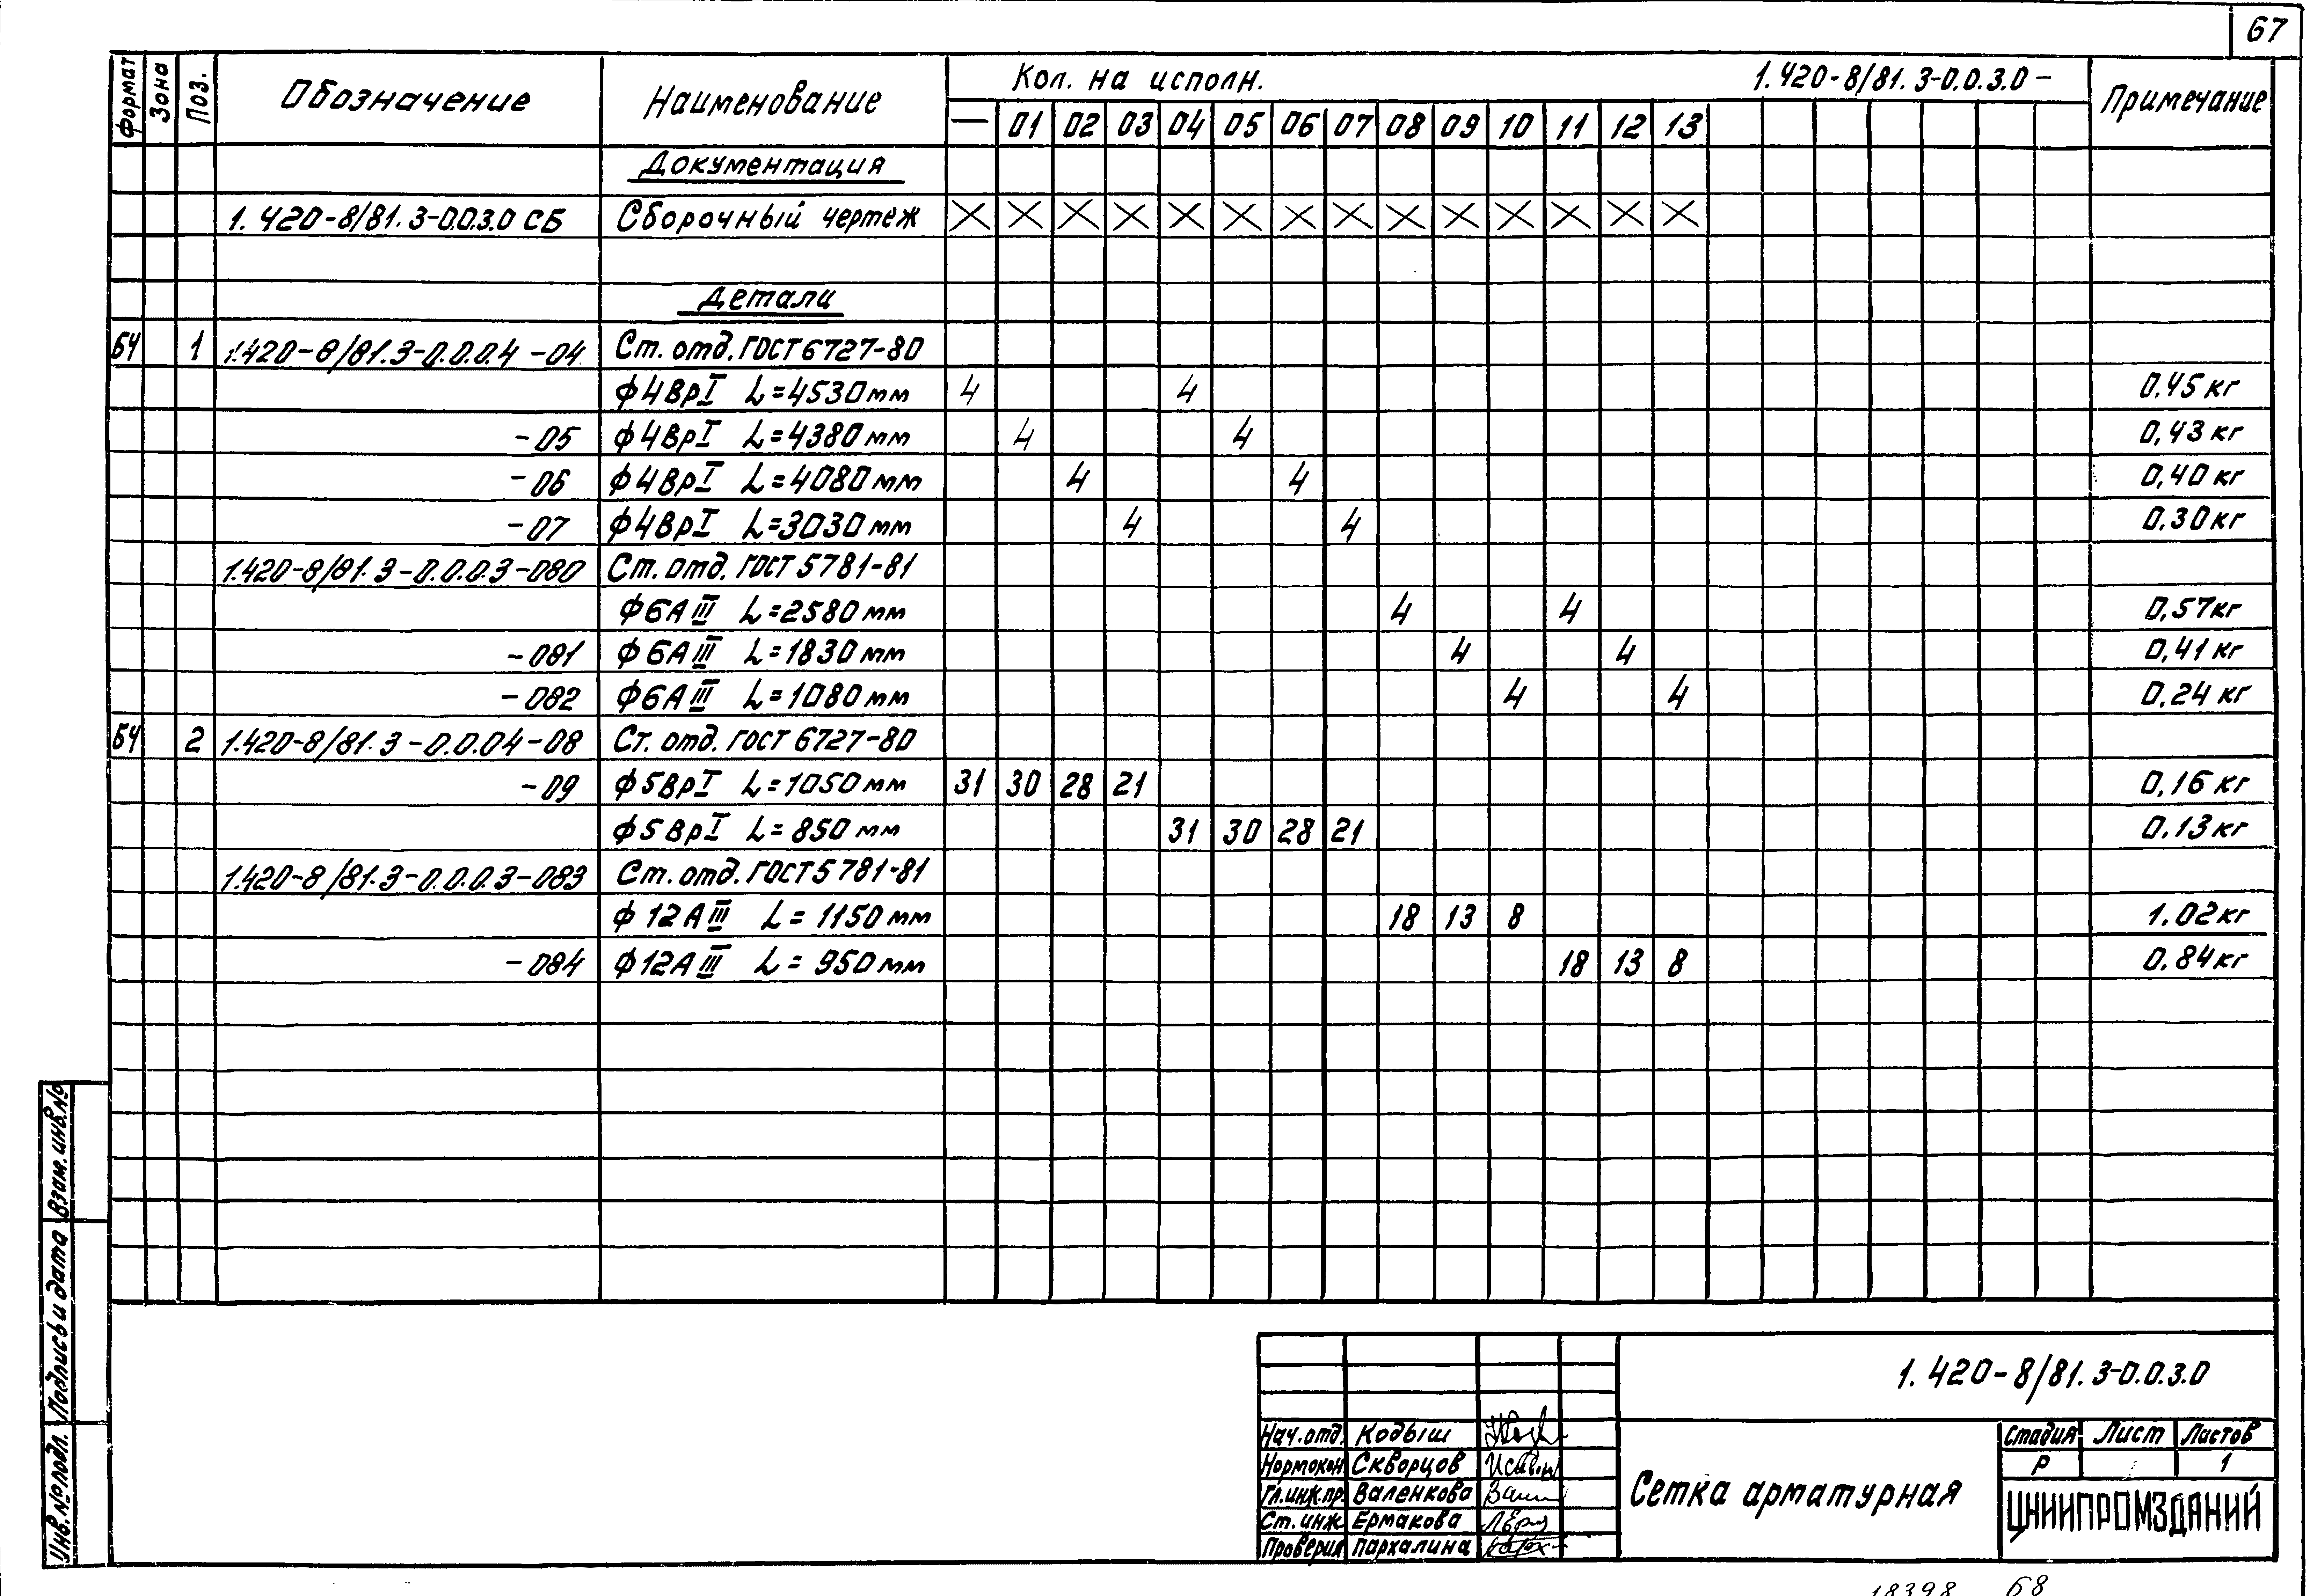 67
Формат Зона Поз. Обозначение Наименование Кол. на исполн. 1.420-8/81.3-0.0.3.0- Примечание
— 01 02 03 04 05 06 07 08 09 10 11 12 13
Документация
1.420-8/81.3-0.0.3.0 СБ Сборочный чертеж X X X X X X X X X X X X X X
Детали
БЧ 1 1.420-8/81.3-0.0.0.4 -04 Ст. отд. ГОСТ 6727-80
ф4ВрI L=4530мм 4 4 0,45кг
-05 ф4ВрI L=4380мм 4 4 0,43кг
-06 ф4ВрI L=4080мм 4 4 0,40кг
-07 ф4ВрI L=3030мм 4 4 0.30кг
1.420-8/81.3-0.0.0.3-080 Ст. отд. ГОСТ 5781-81
ф6АIII L=2580мм 4 4 0,57кг
-081 ф6АIII L=1830мм 4 4 0,41кг
-082 ф6АIII L=1080мм 4 4 0.24кг
БЧ 2 1.420-8/81.3-0.0.04-08 Ст. отд. ГОСТ 6727-80
-09 ф5ВрI L=1050мм 31 30 28 21 0,16кг
ф5ВрI L=850мм 31 30 28 21 0.13кг
1.420-8/81.3-0.0.0.3-083 Ст. отд. ГОСТ 5781-81
ф12АIII L=1150мм 18 13 8 1.02кг
-084 ф12АIII L=950мм 18 13 8 0.84кг
Инв.№подл. Подпись и дата Взам.инв.№
1.420-8/81.3-0.0.3.0
Нач.отд. Кодыш
Нормокон Скворцов
Гл.инж.пр. Валенкова
Ст.инж. Ермакова
Проверил Пархалина
Сетка арматурная
Стадия Лист Листов
Р 1
ЦНИИПРОМЗДАНИЙ
18398 68